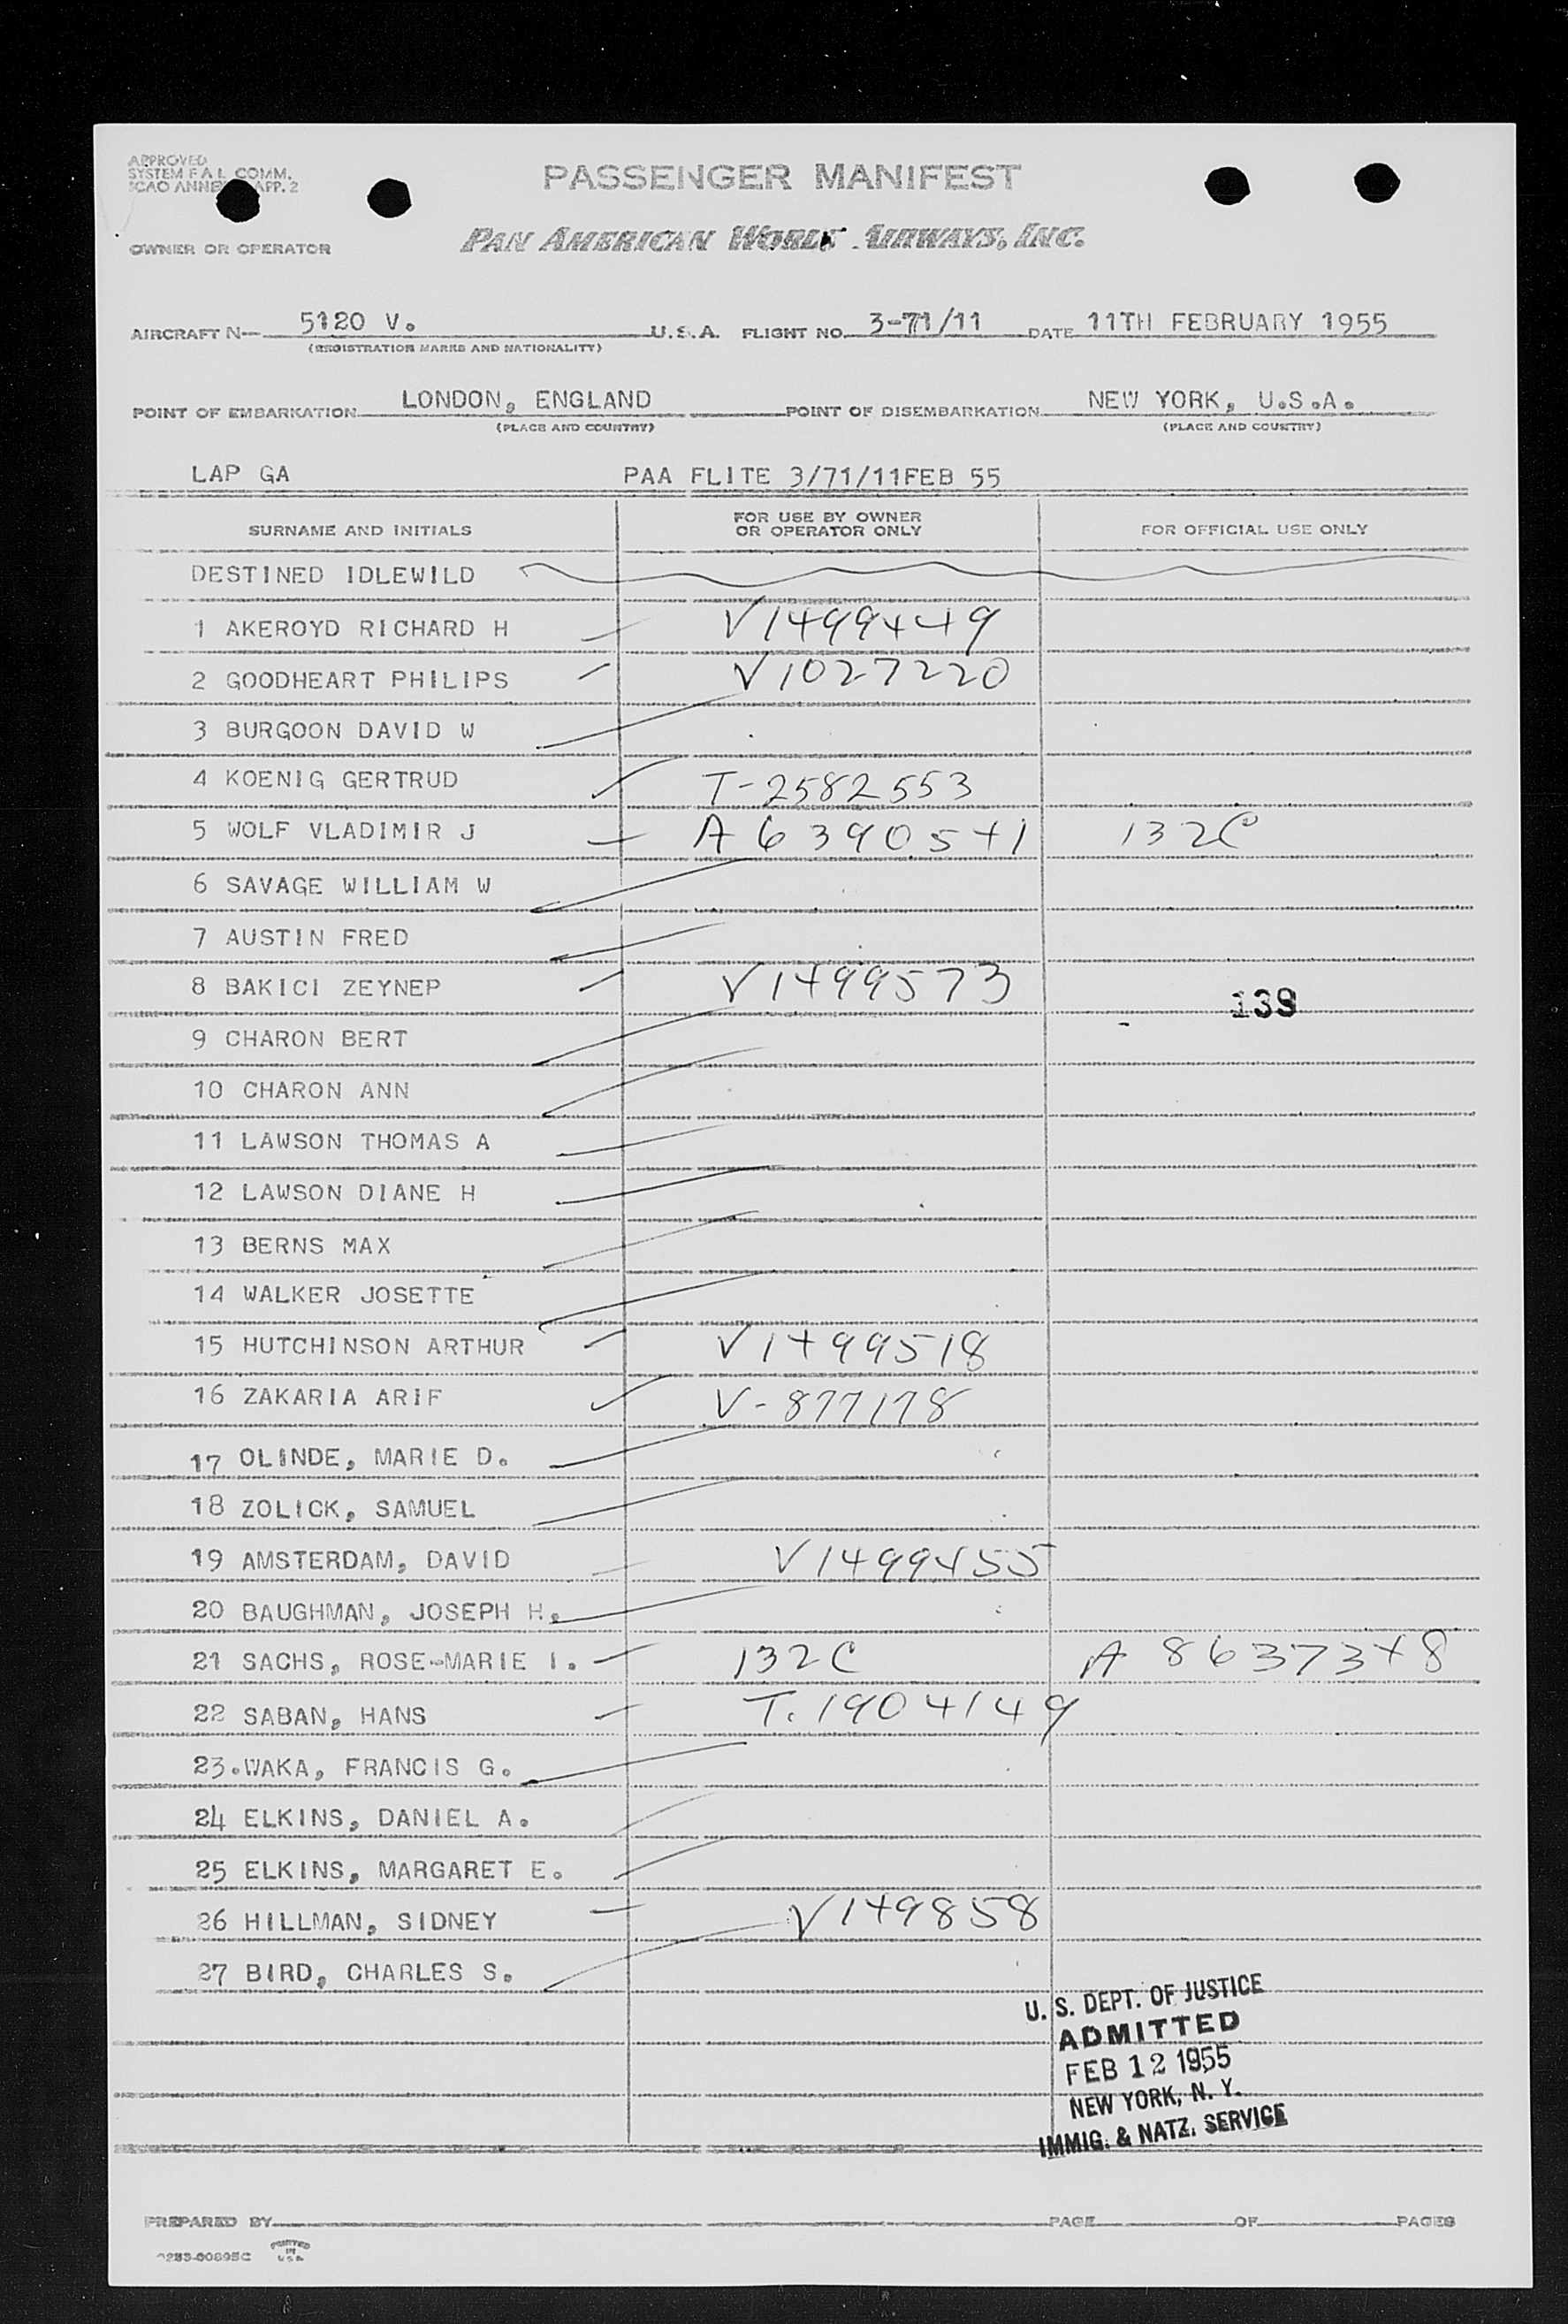 APPROVED
SYSTEM F A L COMM.
ICAO ANNEX APP. 2
PASSENGER MANIFEST
OWNER OR OPERATOR PAN AMERICAN WORLD AIRWAYS, INC.
AIRCRAFT N— 5120 V. U.S.A. FLIGHT NO. 3-71/11 DATE 11TH FEBRUARY 1955
(REGISTRATION MARKS AND NATIONALITY)
POINT OF EMBARKATION LONDON, ENGLAND POINT OF DISEMBARKATION NEW YORK, U.S.A.
(PLACE AND COUNTRY) (PLACE AND COUNTRY)
LAP GA PAA FLITE 3/71/11FEB 55
SURNAME AND INITIALS FOR USE BY OWNER OR OPERATOR ONLY FOR OFFICIAL USE ONLY
DESTINED IDLEWILD
1 AKEROYD RICHARD H V1499449
2 GOODHEART PHILIPS V1027220
3 BURGOON DAVID W
4 KOENIG GERTRUD T-2582553
5 WOLF VLADIMIR J A 6390541 132C
6 SAVAGE WILLIAM W
7 AUSTIN FRED
8 BAKICI ZEYNEP V1499573
139
9 CHARON BERT
10 CHARON ANN
11 LAWSON THOMAS A
12 LAWSON DIANE H
13 BERNS MAX
14 WALKER JOSETTE
15 HUTCHINSON ARTHUR V1499518
16 ZAKARIA ARIF V-877178
17 OLINDE, MARIE D.
18 ZOLICK, SAMUEL
19 AMSTERDAM, DAVID V1499455
20 BAUGHMAN, JOSEPH H.
21 SACHS, ROSE-MARIE I. 132C A 8637348
22 SABAN, HANS T.1904149
23.WAKA, FRANCIS G.
24 ELKINS, DANIEL A.
25 ELKINS, MARGARET E.
26 HILLMAN, SIDNEY V149858
27 BIRD, CHARLES S.
U. S. DEPT. OF JUSTICE
ADMITTED
FEB 12 1955
NEW YORK, N. Y.
IMMIG. & NATZ. SERVICE
PREPARED BY PAGE OF PAGES
PRINTED IN U.S.A.